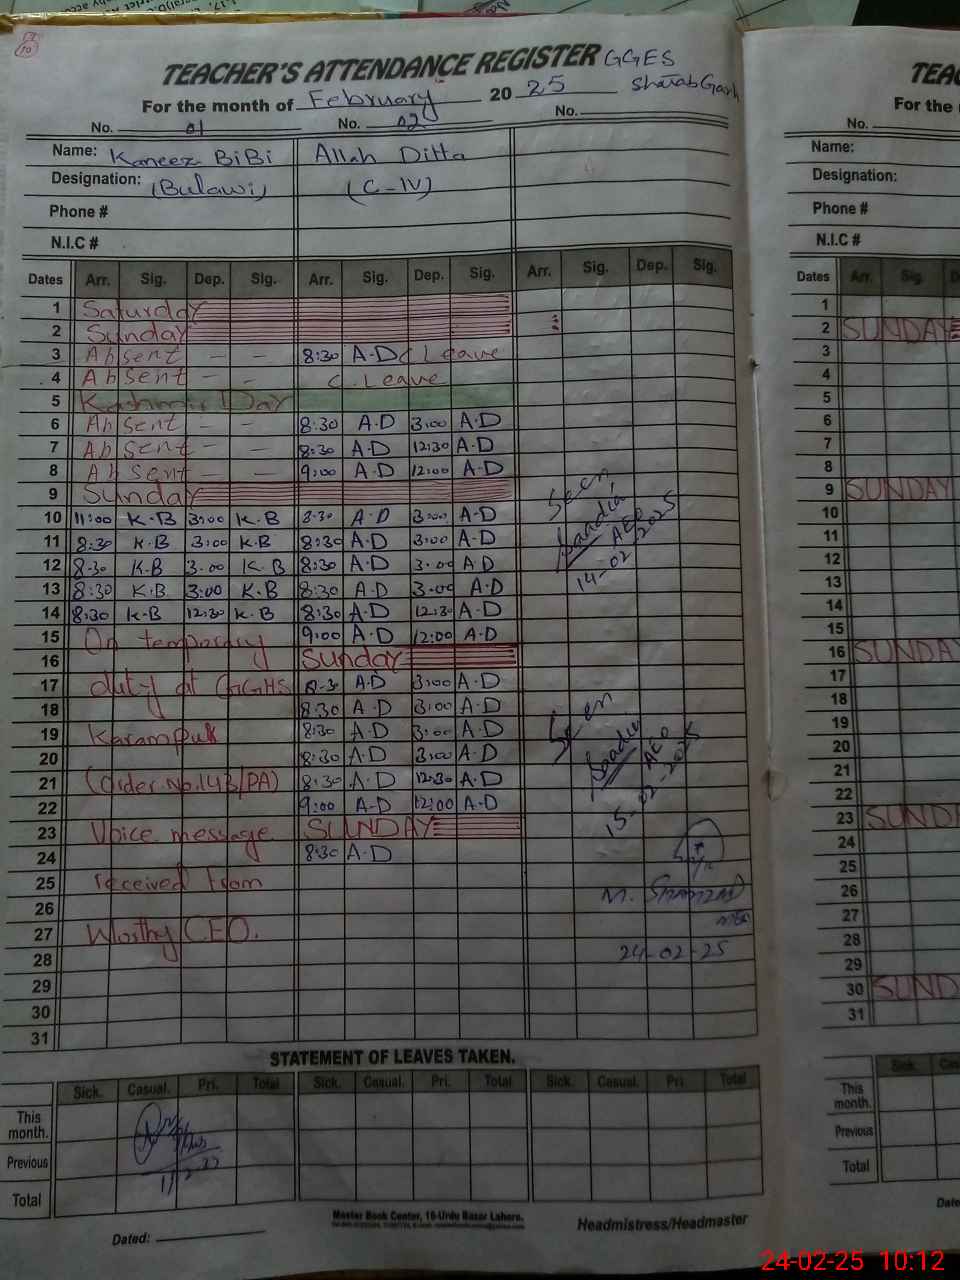 TEACHER'S ATTENDANCE REGISTER GGES
For the month of February 20 25 Sharab Garh
No. 01 No. 02 No.
Name: Kaneez BiBi Allah Ditta
Designation: (Bulawi) (C-IV)
Phone #
N.I.C #
Dates Arr. Sig. Dep. Sig. Arr. Sig. Dep. Sig. Arr. Sig. Dep. Sig.
1 Saturday
2 Sunday
3 Absent — — 8:30 A.D C Leave
4 Absent — — C. Leave
5 Kashmir Day
6 Absent — — 8:30 A.D 3:00 A.D
7 Absent — — 8:30 A.D 12:30 A.D
8 Absent — — 9:00 A.D 12:00 A.D
9 Sunday
10 11:00 K.B 3:00 K.B 8:30 A.D 3:00 A.D
11 8:30 K.B 3:00 K.B 8:30 A.D 3:00 A.D
12 8:30 K.B 3:00 K.B 8:30 A.D 3:00 A D
13 8:30 K.B 3:00 K.B 8:30 A.D 3:00 A.D
14 8:30 K.B 12:30 K.B 8:30 A.D 12:30 A.D
15 On temporary 9:00 A.D 12:00 A.D
16 Sunday
17 duty at GGHS 8:30 A.D 3:00 A.D
18 8:30 A.D 3:00 A.D
19 Karampur 8:30 A.D 3:00 A.D
20 8:30 A.D 3:00 A.D
21 (Order No.143/PA) 8:30 A.D 12:30 A.D
22 9:00 A.D 12:00 A.D
23 Voice message SUNDAY
24 8:30 A.D
25 received from
26
27 Worthy CEO.
28
29
30
31
Seen
Saadia
AEO
14-02-2025
Seen
Saadia
AEO
15-02-2025
M. Shahzad
24-02-25
STATEMENT OF LEAVES TAKEN.
Sick. Casual. Pri. Total Sick. Casual. Pri. Total Sick. Casual. Pri. Total
This month.
Previous
Total
Master Book Center, 16-Urdu Bazar Lahore.
Dated: Headmistress/Headmaster
TEAC
For the
No.
Name:
Designation:
Phone #
N.I.C #
Dates Arr. Sig.
1
2 SUNDAY
3
4
5
6
7
8
9 SUNDAY
10
11
12
13
14
15
16 SUNDAY
17
18
19
20
21
22
23 SUNDA
24
25
26
27
28
29
30 SUND
31
Sick.
This month.
Previous
Total
24-02-25 10:12